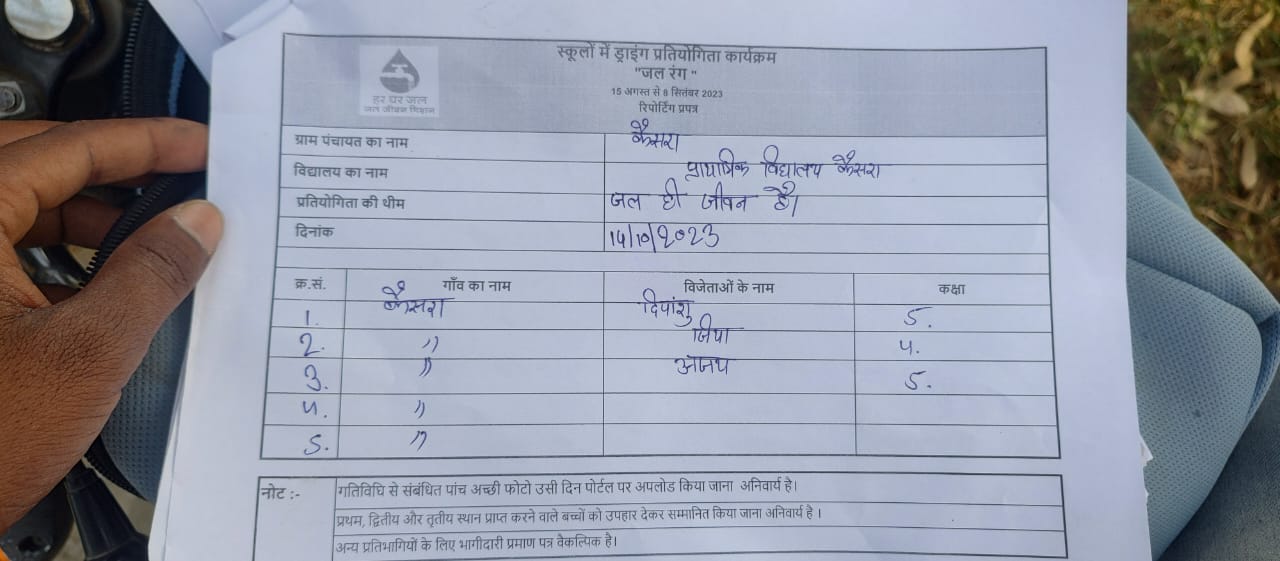 स्कूलों में ड्राइंग प्रतियोगिता कार्यक्रम
"जल रंग "
15 अगस्त से 8 सितंबर 2023
रिपोर्टिंग प्रपत्र
हर घर जल
जल जीवन मिशन
ग्राम पंचायत का नाम कैसरा
विद्यालय का नाम प्राथमिक विद्यालय कैसरा
प्रतियोगिता की थीम जल ही जीवन है।
दिनांक 14/10/2023
क्र.सं. गाँव का नाम विजेताओं के नाम कक्षा
1. कैसरा दिपांशु 5.
2. " जिया 4.
3. " अजय 5.
4. "
5. "
नोट :- गतिविधि से संबंधित पांच अच्छी फोटो उसी दिन पोर्टल पर अपलोड किया जाना अनिवार्य है।
प्रथम, द्वितीय और तृतीय स्थान प्राप्त करने वाले बच्चों को उपहार देकर सम्मानित किया जाना अनिवार्य है ।
अन्य प्रतिभागियों के लिए भागीदारी प्रमाण पत्र वैकल्पिक है।